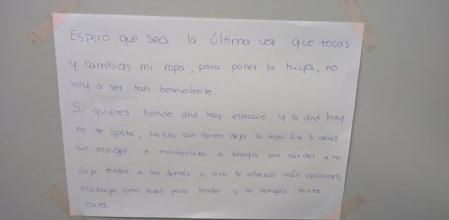 Espero que sea la última vez que tocas
y cambias mi ropa, para poner la tuya, no
voy a ser tan benevolente.
Si quieres tiende dnd hay espacio y si dnd hay
no te gusta, habla con quien deja la ropa 2 y 3 días
sin recoger o monopoliza a braga por cordel y no
deja tender a los demás y si no te ofrezco más opciones,
madruga como todos para tender y no tengas tanta
cara.